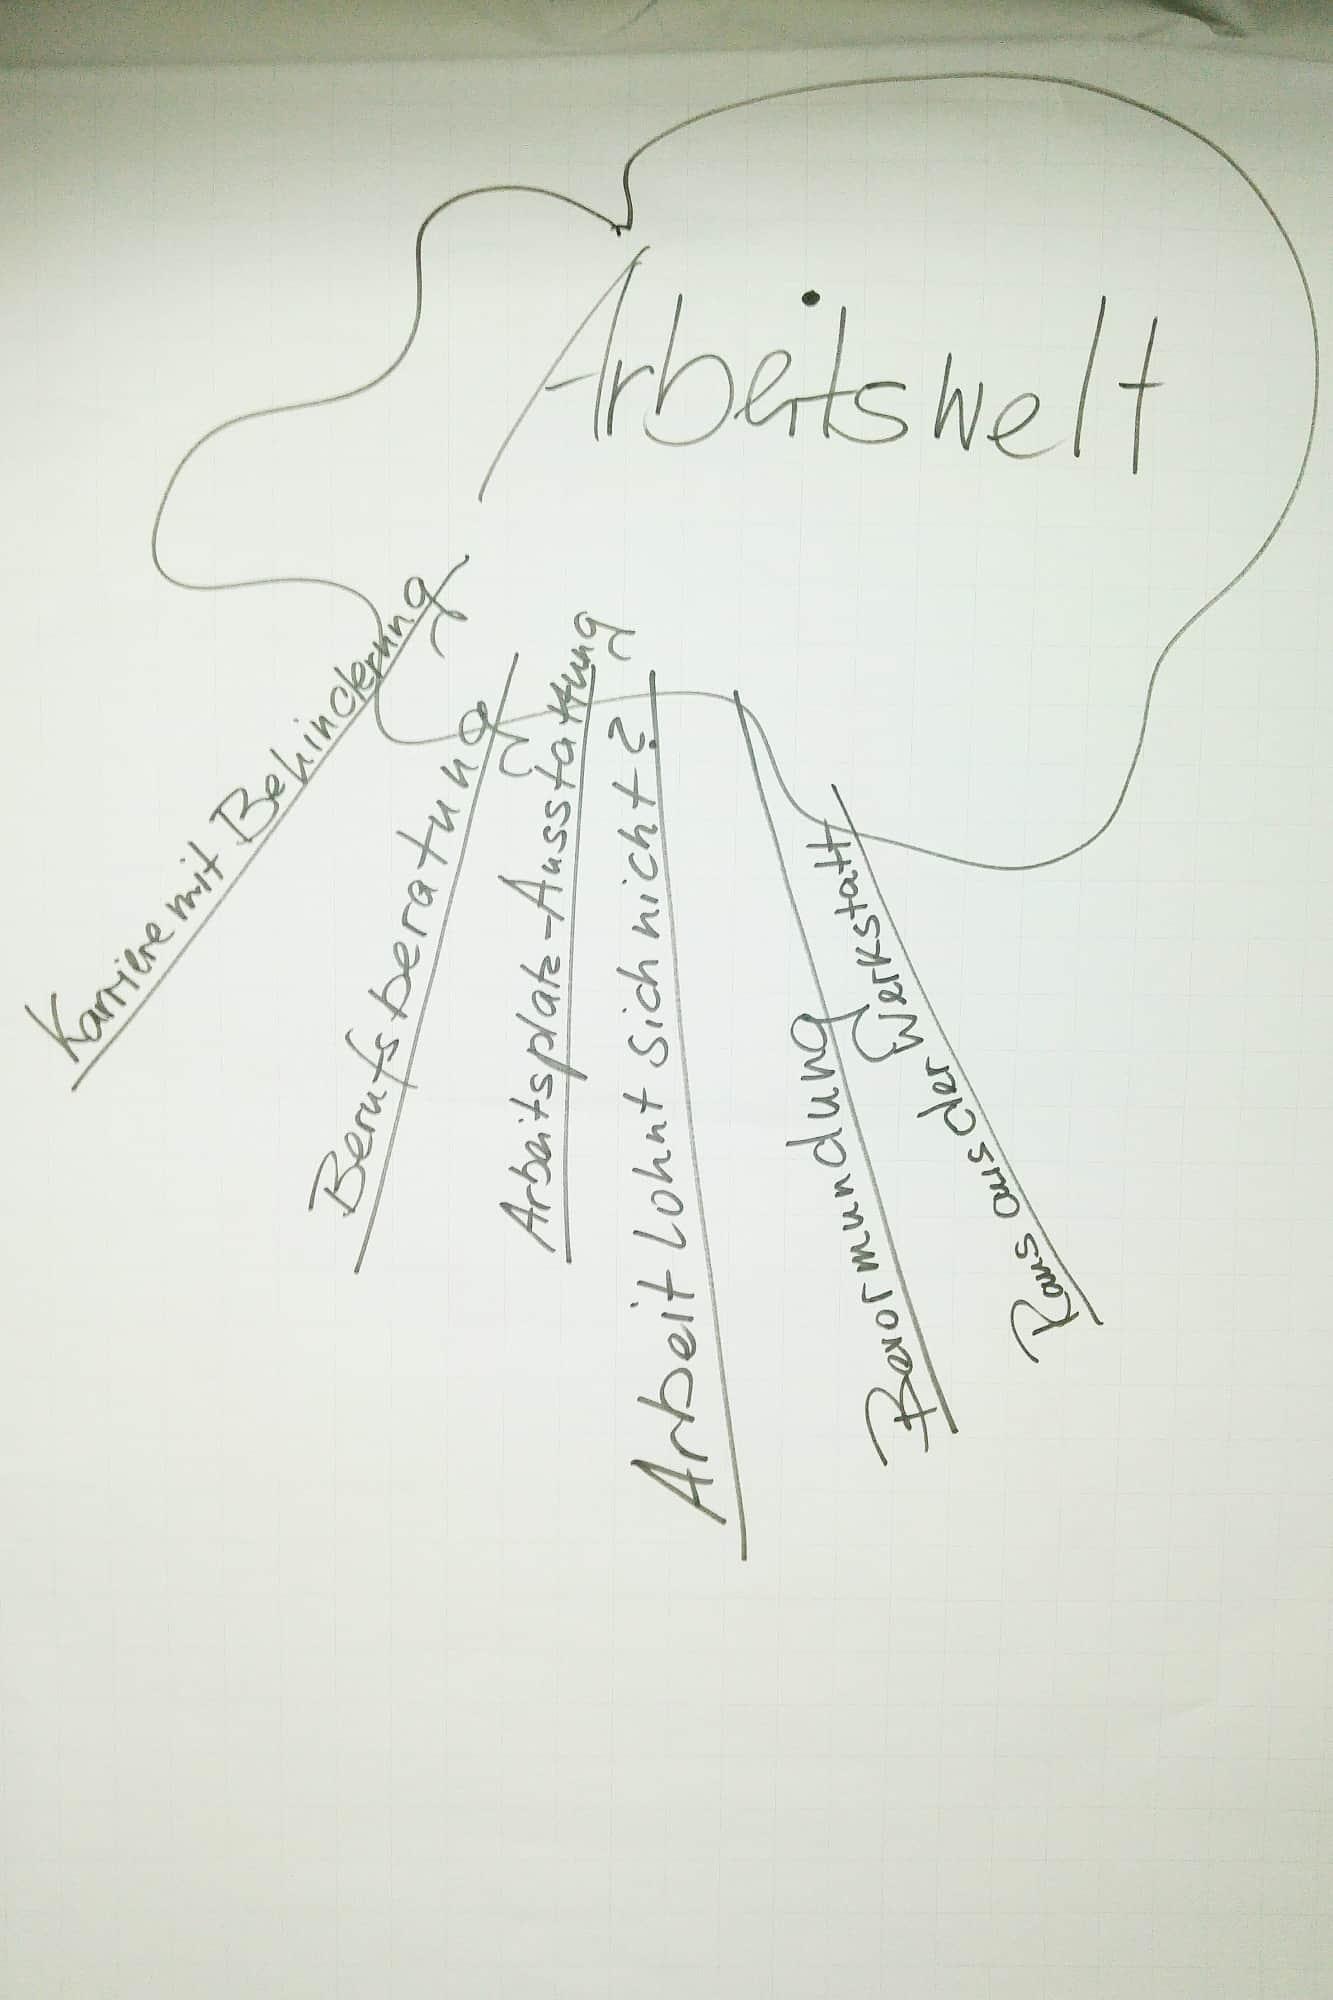 Arbeitswelt
Karriere mit Behinderung
Berufsberatung
Arbeitsplatz-Ausstattung
Arbeit Lohnt sich nicht?
Bevormundung
Raus aus der Werkstatt